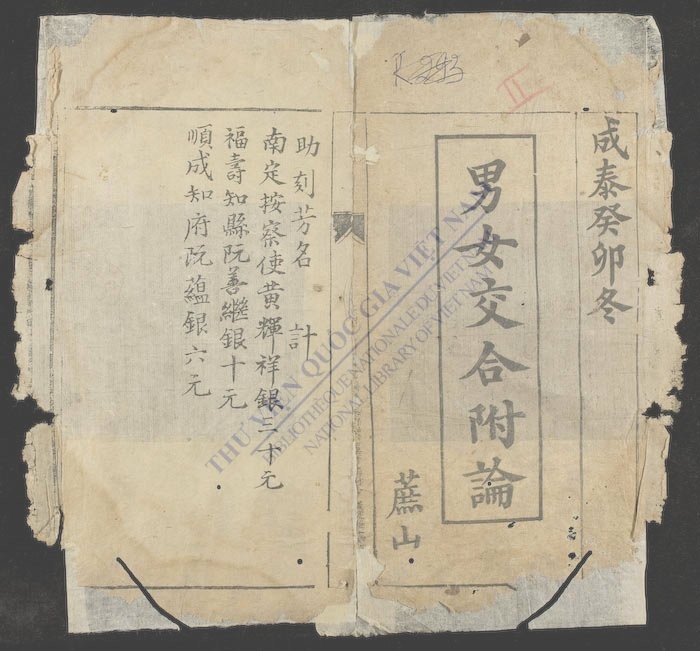 成泰癸卯冬
男女交合附論
蔗山
助刻芳名 計
南定按察使黃輝祥銀三十元
福壽知縣阮善繼銀十元
順成知府阮蘊銀六元
II
THƯ VIỆN QUỐC GIA VIỆT NAM
BIBLIOTHÈQUE NATIONALE DU VIETNAM
NATIONAL LIBRARY OF VIETNAM